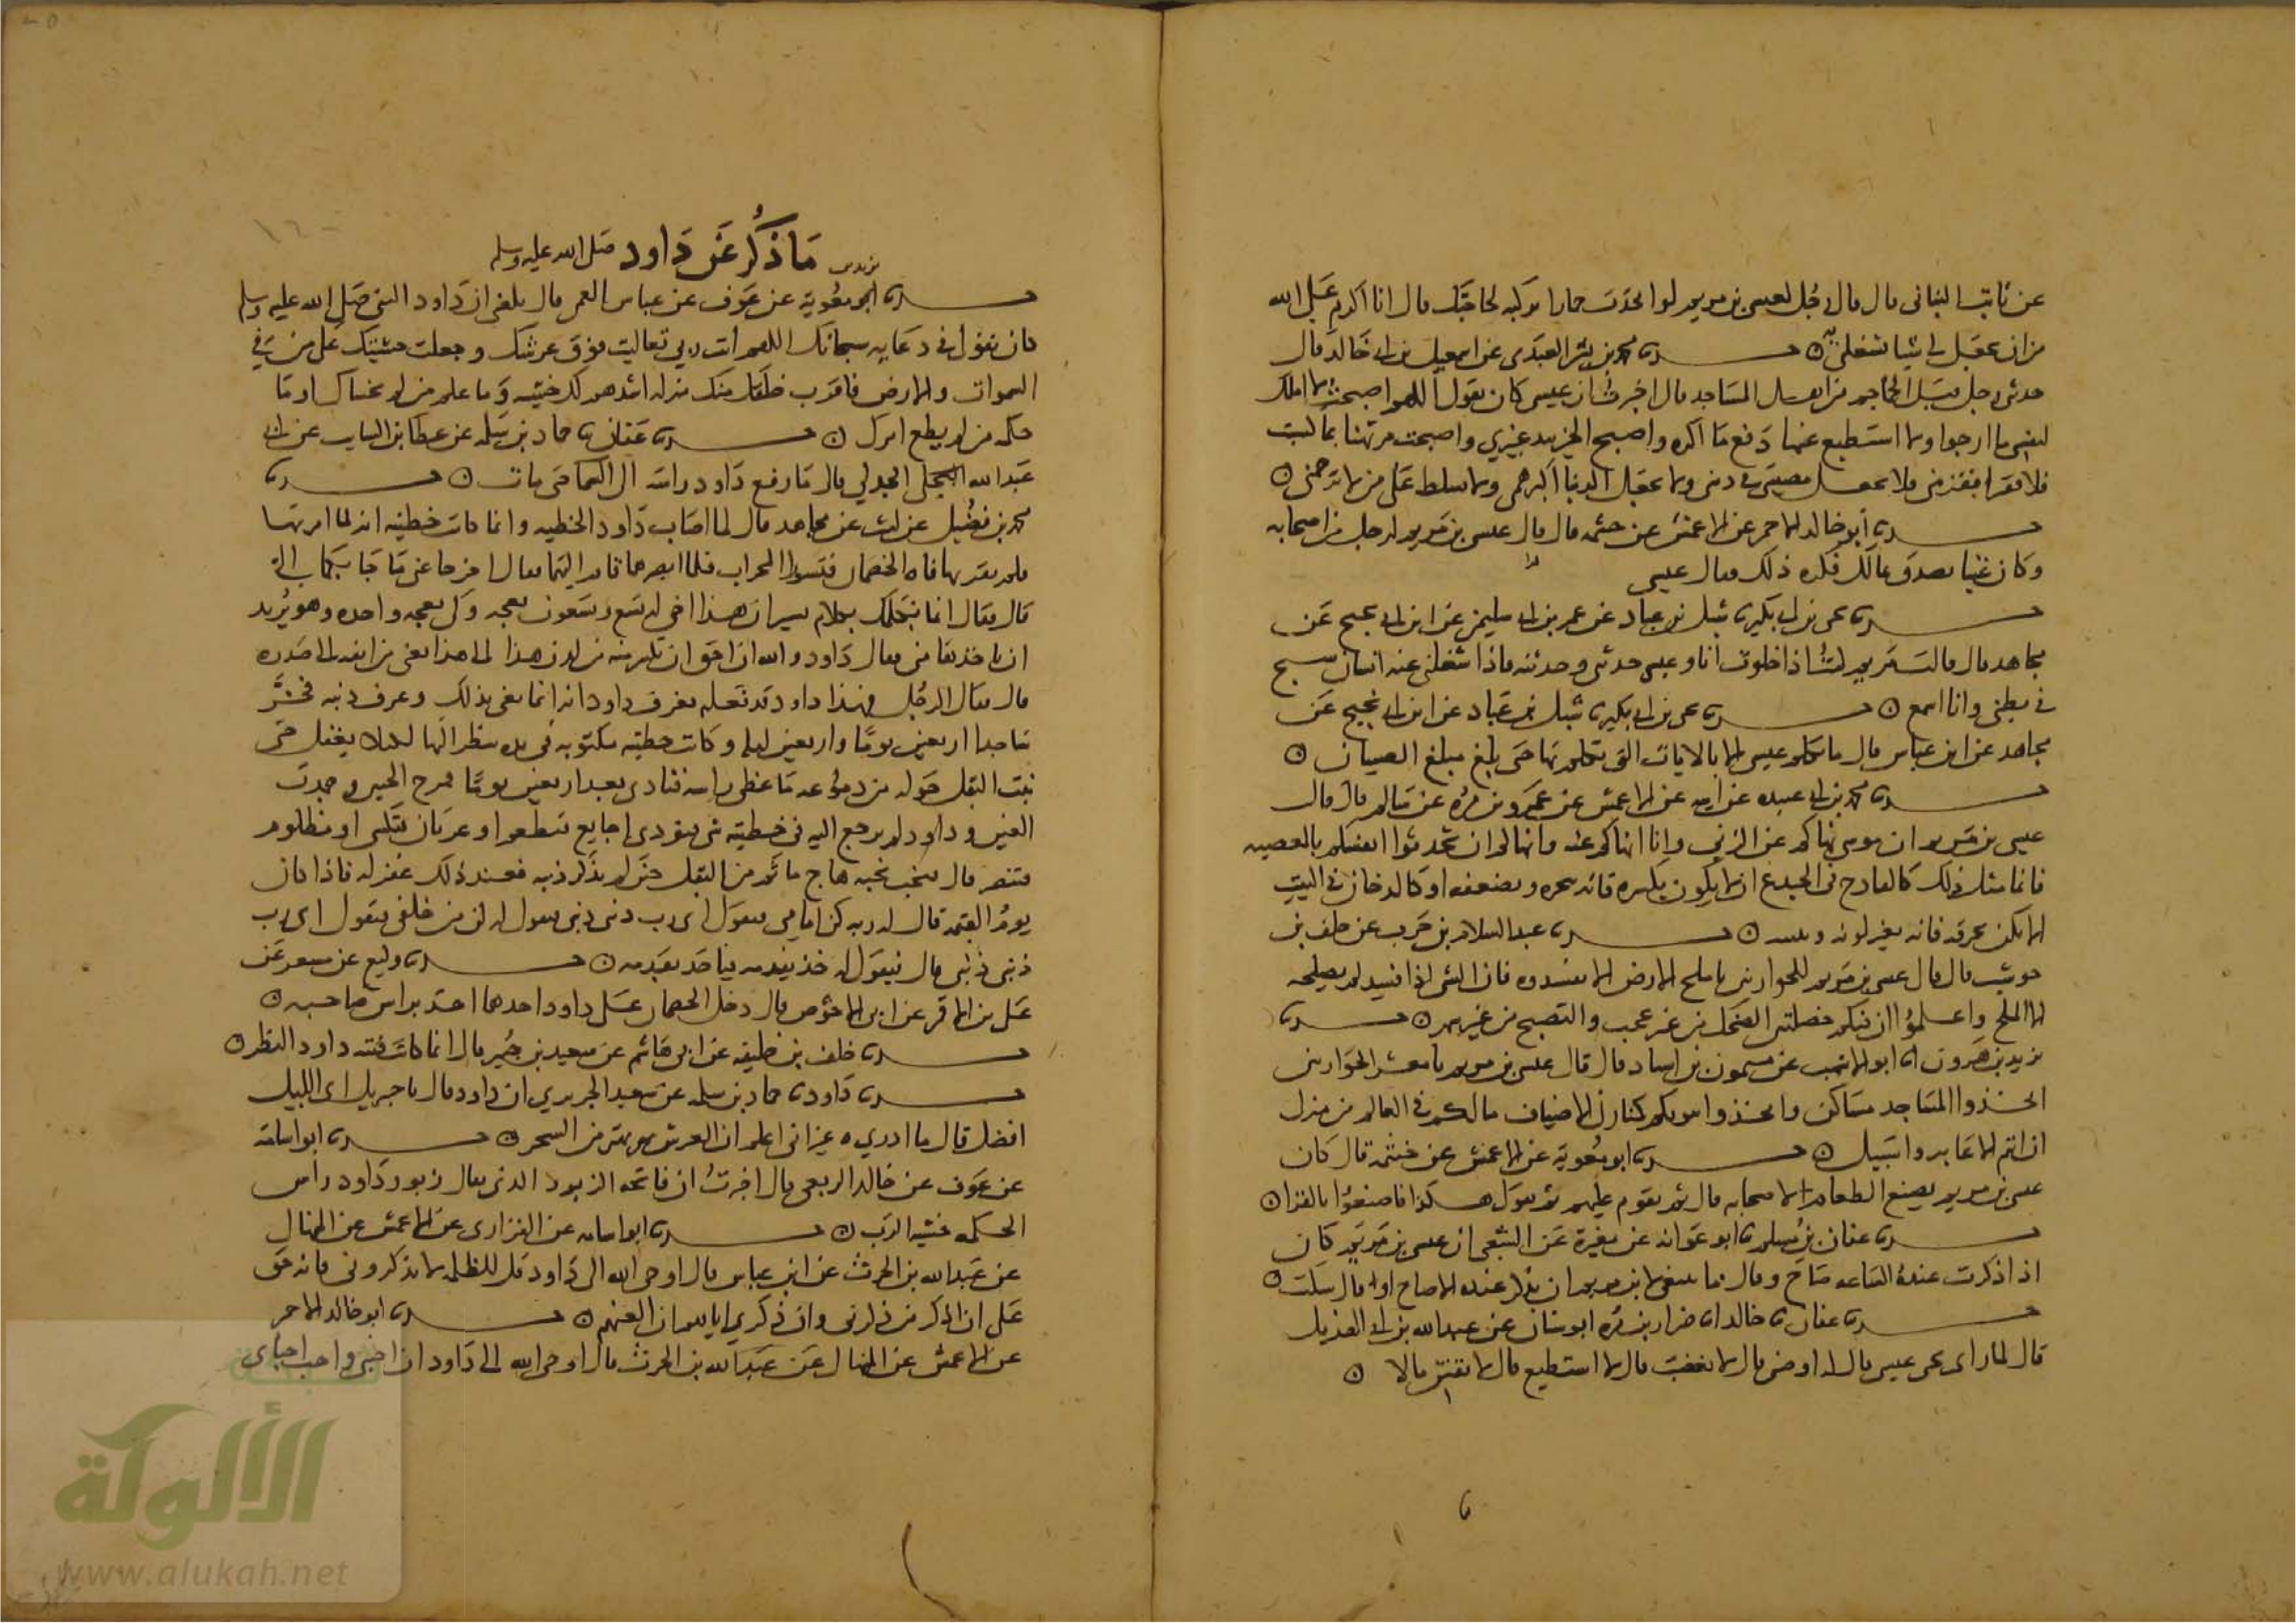 عن ثابت البناني قال قال رجل لعيسى بن مريم لو اتخذت حمارا تركبه لحاجتك قال انا اكرم على الله
من ان يجعل لي شيا يشغلني به حدثنا محمد بن بشر العبدي عن اسمعيل بن ابي خالد قال
حدثني رجل قبل الجماجم من اهل المساجد قال اخبرت ان عيسى كان يقول اللهم اصبحت لا املك
لنفسي ما ارجوا ولا استطيع عنها دفع ما اكره واصبح الخير بيد غيري واصبحت مرتهنا بما كسبت
فلا فقير افقر مني فلا تجعل مصيبتي في ديني ولا تجعل الدنيا اكبر همي ولا تسلط علي من لا يرحمني
حدثنا ابو خالد الاحمر عن الاعمش عن خيثمه قال قال عيسى بن مريم لرجل من اصحابه
وكان غنيا تصدق بمالك فكره ذلك فقال عيسى
حدثنا يحيى بن ابي بكير نا شبل بن عباد عن عمر بن ابي سليمن عن ابن ابي نجيح عن
مجاهد قال قالت مريم كنت اذا خلوت انا وعيسى حدثني وحدثته فاذا شغلني عنه انسان سبح
في بطني وانا اسمع حدثنا يحيى بن ابي بكير نا شبل بن عباد عن ابن ابي نجيح عن
مجاهد عن ابن عباس قال ما تكلم عيسى الا بالايات التي تكلم بها حتى بلغ مبلغ الصبيان
حدثنا محمد بن ابي عبيده عن ابيه عن الاعمش عن عمرو بن مره عن سالم قال قال
عيسى بن مريم ان موسى نهاكم عن الزنى وانا انهاكم عنه وانهاكم ان تحدثوا انفسكم بالمعصيه
فانما مثل ذلك كالقادح في الجذع ان لا يكون يكسره فانه ينخره ويضعفه او كالدخان في البيت
الا يكن يحرقه فانه يغير لونه وينتنه حدثنا عبد السلام بن حرب عن خلف بن
حوشب قال قال عيسى بن مريم للحوارين يا ملح الارض لا تفسدوه فان الشي اذا فسد لم يصلحه
الا الملح واعلموا ان فيكم خصلتين الضحك من غير عجب والتصبح من غير سهر حدثنا
يزيد بن هرون انا ابو الاشهب عن ميمون بن استاد قال قال عيسى بن مريم يا معشر الحوارين
اتخذوا المساجد مساكن واتخذوا بيوتكم كمنازل الاضياف ما لكم في العالم من منزل
ان انتم الا عابروا سبيل حدثنا ابو معوية عن الاعمش عن خيثمه قال كان
عيسى بن مريم يصنع الطعام لاصحابه قال ثم يقوم عليهم ثم يقول هكذا فاصنعوا بالقرا
حدثنا عفان بن مسلم نا ابو عوانه عن مغيرة عن الشعبي ان عيسى بن مريم كان
اذا ذكرت عنده الساعه صاح وقال ما ينبغي لابن مريم ان تذكر عنده الا صاح او قال سكت
حدثنا عفان نا خالد انا ضرار بن مره ابو سنان عن عبد الله بن ابي الهذيل
قال لما راى يحيى عيسى قال له اوصني قال لا تغضب قال لا استطيع قال لا تقتن مالا
ما ذكر عن داود صلى الله عليه وسلم
حدثنا ابو معوية عن عوف عن عباس العمي قال بلغني ان داود النبي صلى الله عليه وسلم
كان يقول في دعايه سبحانك اللهم انت ربي تعاليت فوق عرشك وجعلت خشيتك على من في
السموات والارض فاقرب خلقك منك منزله اشدهم لك خشيه وما علم من لم يخشاك او ما
حكمه من لم يطع امرك حدثنا عفان نا حماد بن سلمه عن عطا بن السايب عن ابي
عبد الله الجدلي قال ما رفع داود راسه الى السما حتى مات حدثنا
محمد بن فضيل عن ليث عن مجاهد قال لما اصاب داود الخطيه وانما كانت خطيته انه لما امر بها
فلم يقربها فاتاه الخصمان فتسورا المحراب فلما ابصرهما قام اليهما فقال اخرجا عني ما جا بكما الي
قال فقالا انما نكلمك بكلام يسير ان هذا اخي له تسع وتسعون نعجه ولي نعجه واحده وهو يريد
ان ياخذها مني فقال داود والله ان احق ان يكسر منه من لدن هذا الى هذا يعني من انفه الى صدره
قال فقال الرجل فهذا داود قد فعله فعرف داود انه انما يعنى بذلك وعرف ذنبه فخر
ساجدا اربعين يوما واربعين ليله وكانت خطيته مكتوبه في يده ينظر اليها لكيلا يغفل حتى
نبت البقل حوله من دموعه ما غطى راسه فنادى بعد اربعين يوما قرح الجبين وجمدت
العين وداود لم يرجع اليه في خطيته شي فنودي اجايع فتطعم او عريان فتكسى او مظلوم
فتنصر قال فنحب نحبه هاج ما ثم من البقل حين لم يذكر ذنبه فعند ذلك غفر له فاذا كان
يوم القيمه قال له ربه كن امامي فيقول اي رب ذنبي ذنبي فيقول له كن من خلفي فيقول اي رب
ذنبي ذنبي قال فيقول له خذ بقدمي فياخذ بقدمه حدثنا وكيع عن مسعر عن
علي بن الاقمر عن ابي الاحوص قال دخل الخصمان على داود احدهما اخذ براس صاحبه
حدثنا خلف بن خليفه عن ابي هاشم عن سعيد بن جبير قال انما كانت فتنه داود النظر
حدثنا داود نا حماد بن سلمه عن سعيد الجريري ان داود قال يا جبريل اي الليل
افضل قال ما ادري غير اني اعلم ان العرش يهتز من السحر حدثنا ابو اسامه
عن عوف عن خالد الربعي قال اخبرت ان فاتحه الزبور الذي يقال زبور داود راس
الحكمه خشيه الرب حدثنا ابو اسامه عن الفزاري عن الاعمش عن المنهال
عن عبد الله بن الحرث عن ابن عباس قال اوحى الله الى داود قل للظلمه لا يذكروني فانه حق
علي ان اذكر من ذكرني وان ذكري اياهم ان العنهم حدثنا ابو خالد الاحمر
عن الاعمش عن المنهال عن عبد الله بن الحرث قال اوحى الله الى داود ان احبني واحب احباي
الألوكة
www.alukah.net